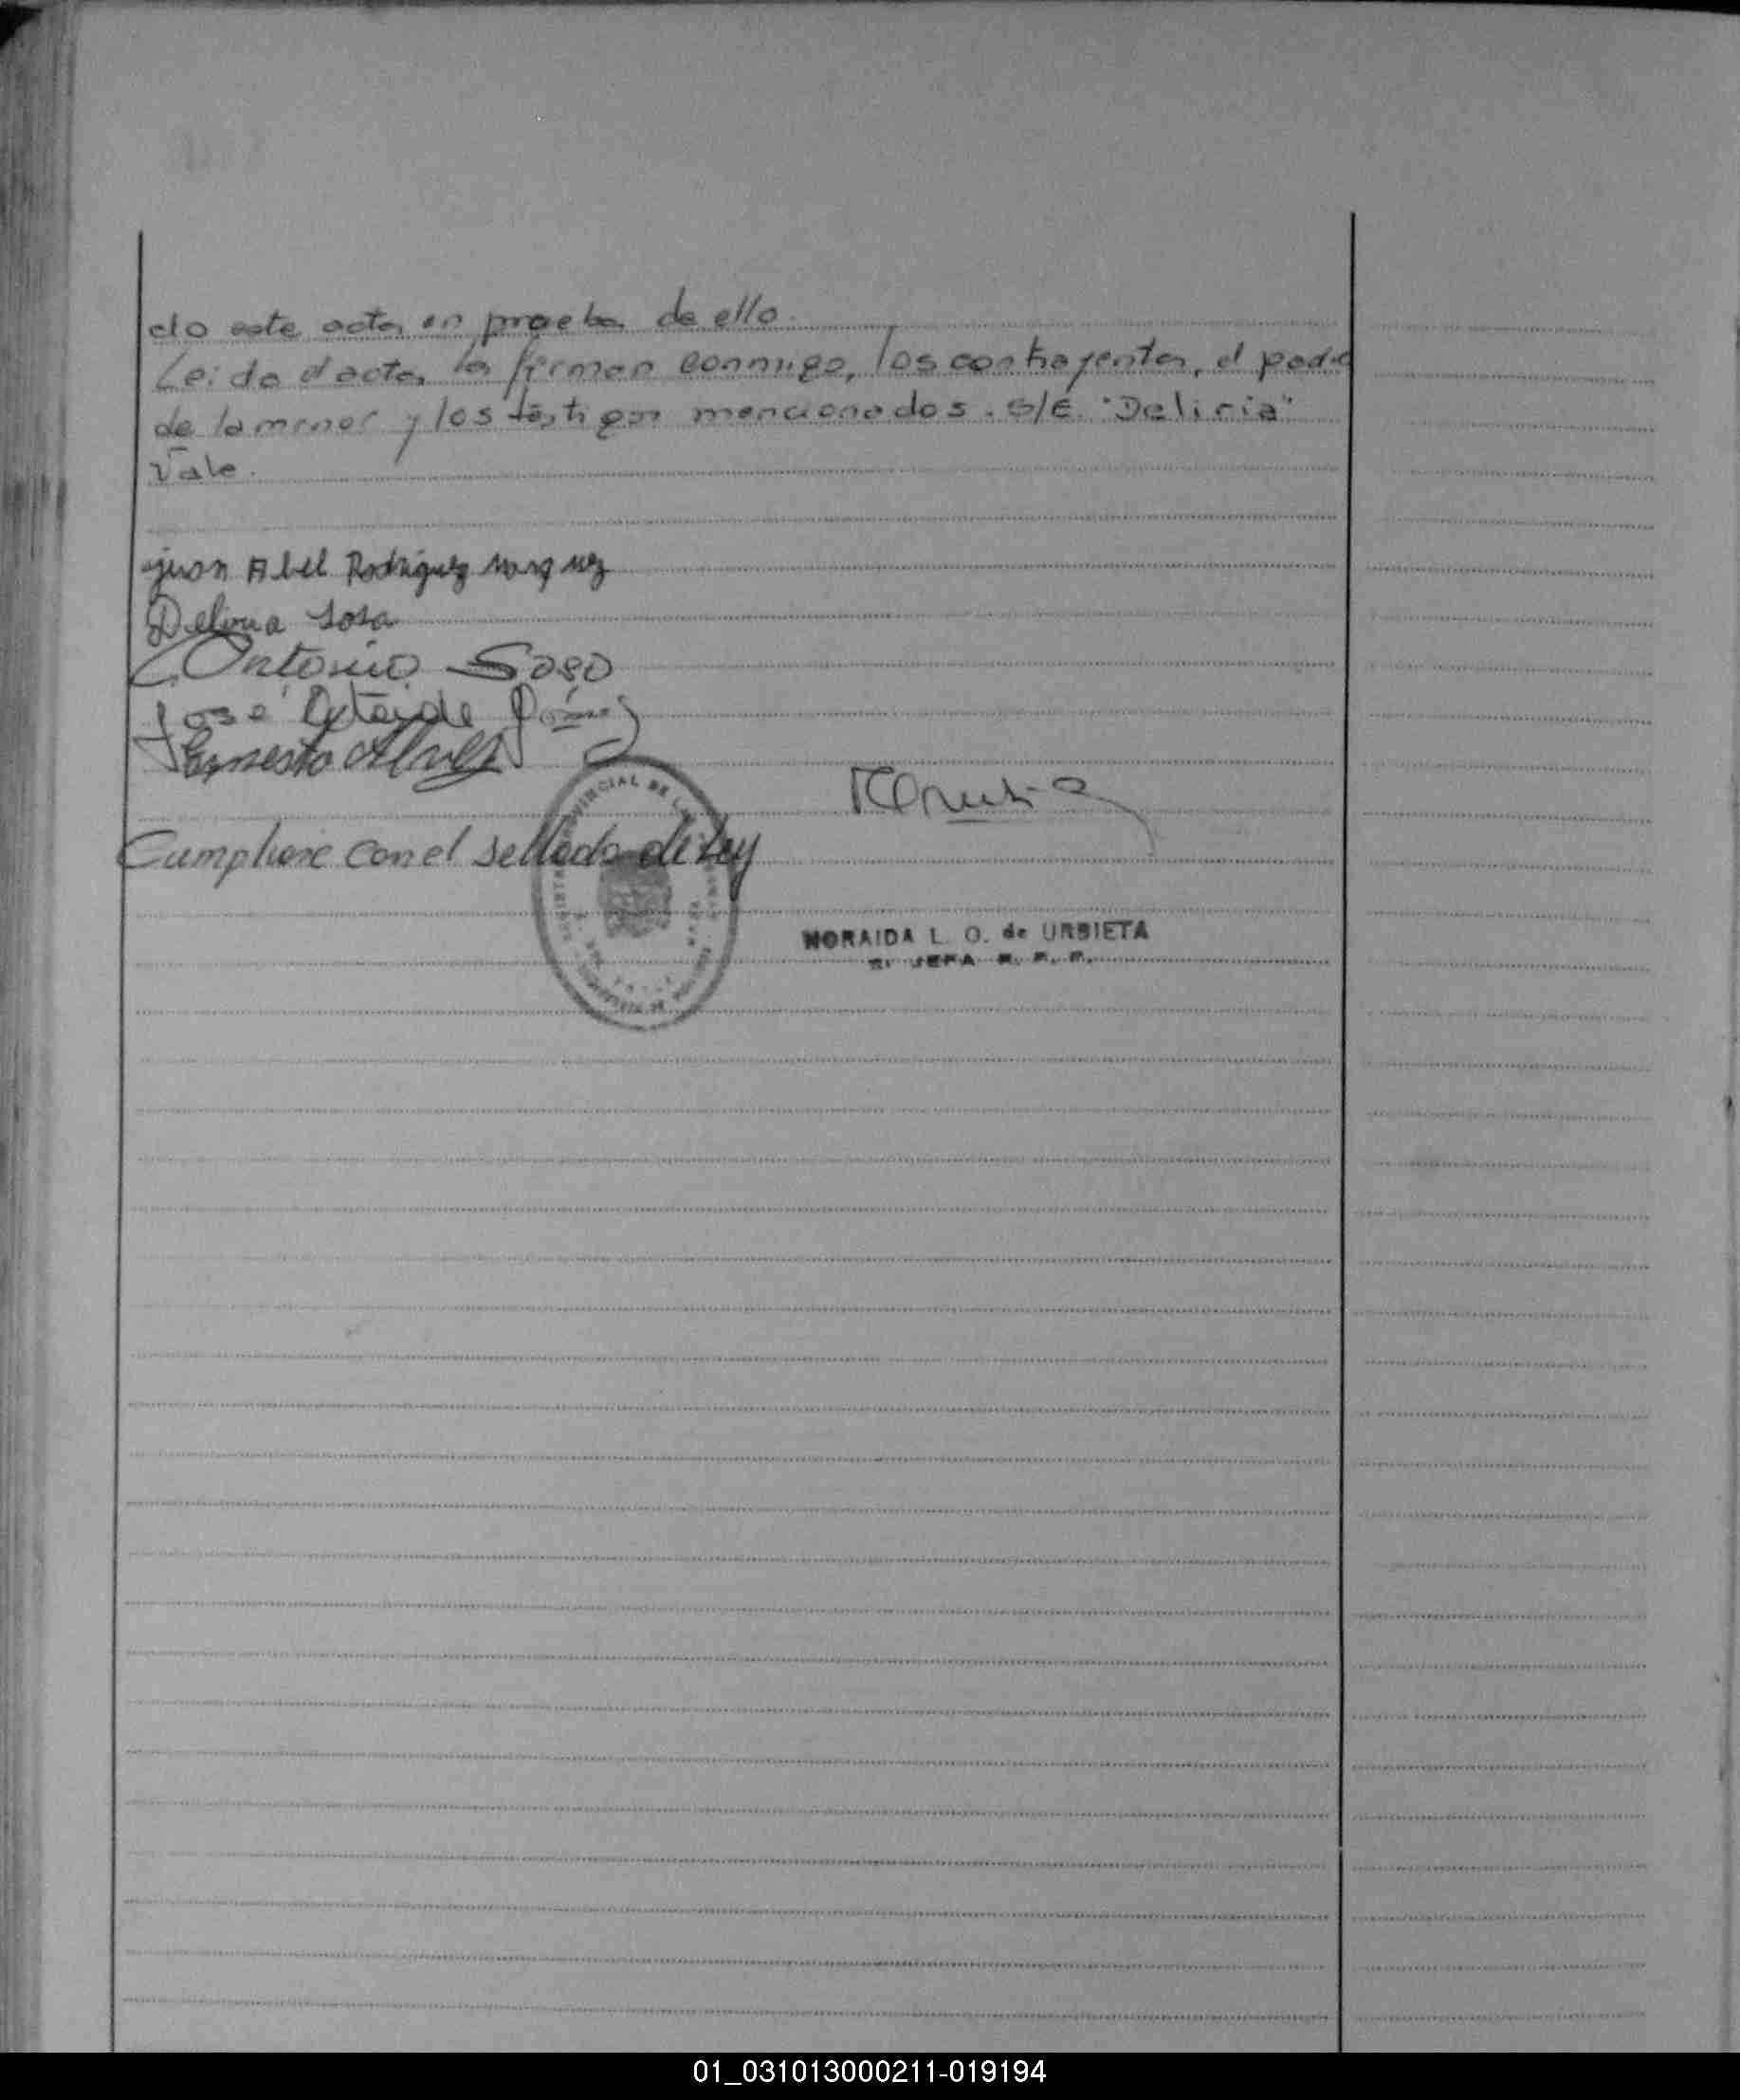 do este acta en prueba de ello.
Leida el acta, la firman conmigo, los contrayentes, el padre
de la menor y los testigos mencionados. S/E. "Deliria"
Vale.
juan Abel Rodriguez
Deliria Sosa
Antonio Soso
José
Ernesto
Cumpliose con el sellado de Ley
NORAIDA L. O. de URBIETA
JEFA R. P. P.
01_031013000211-019194